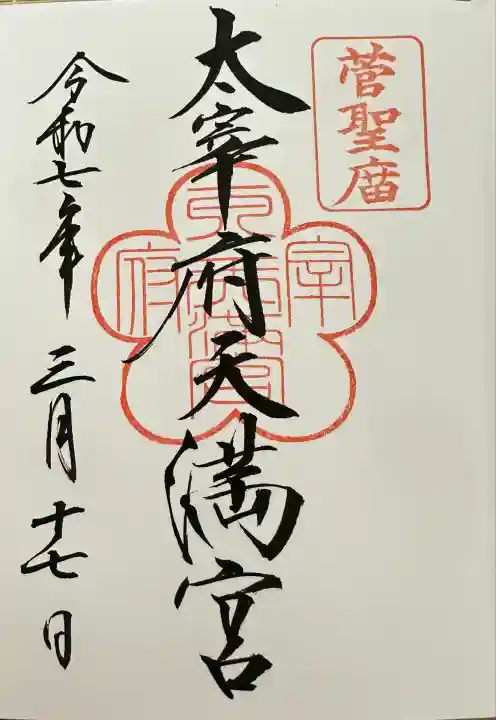 菅聖庿
太宰府天満宮
令和七年三月十七日